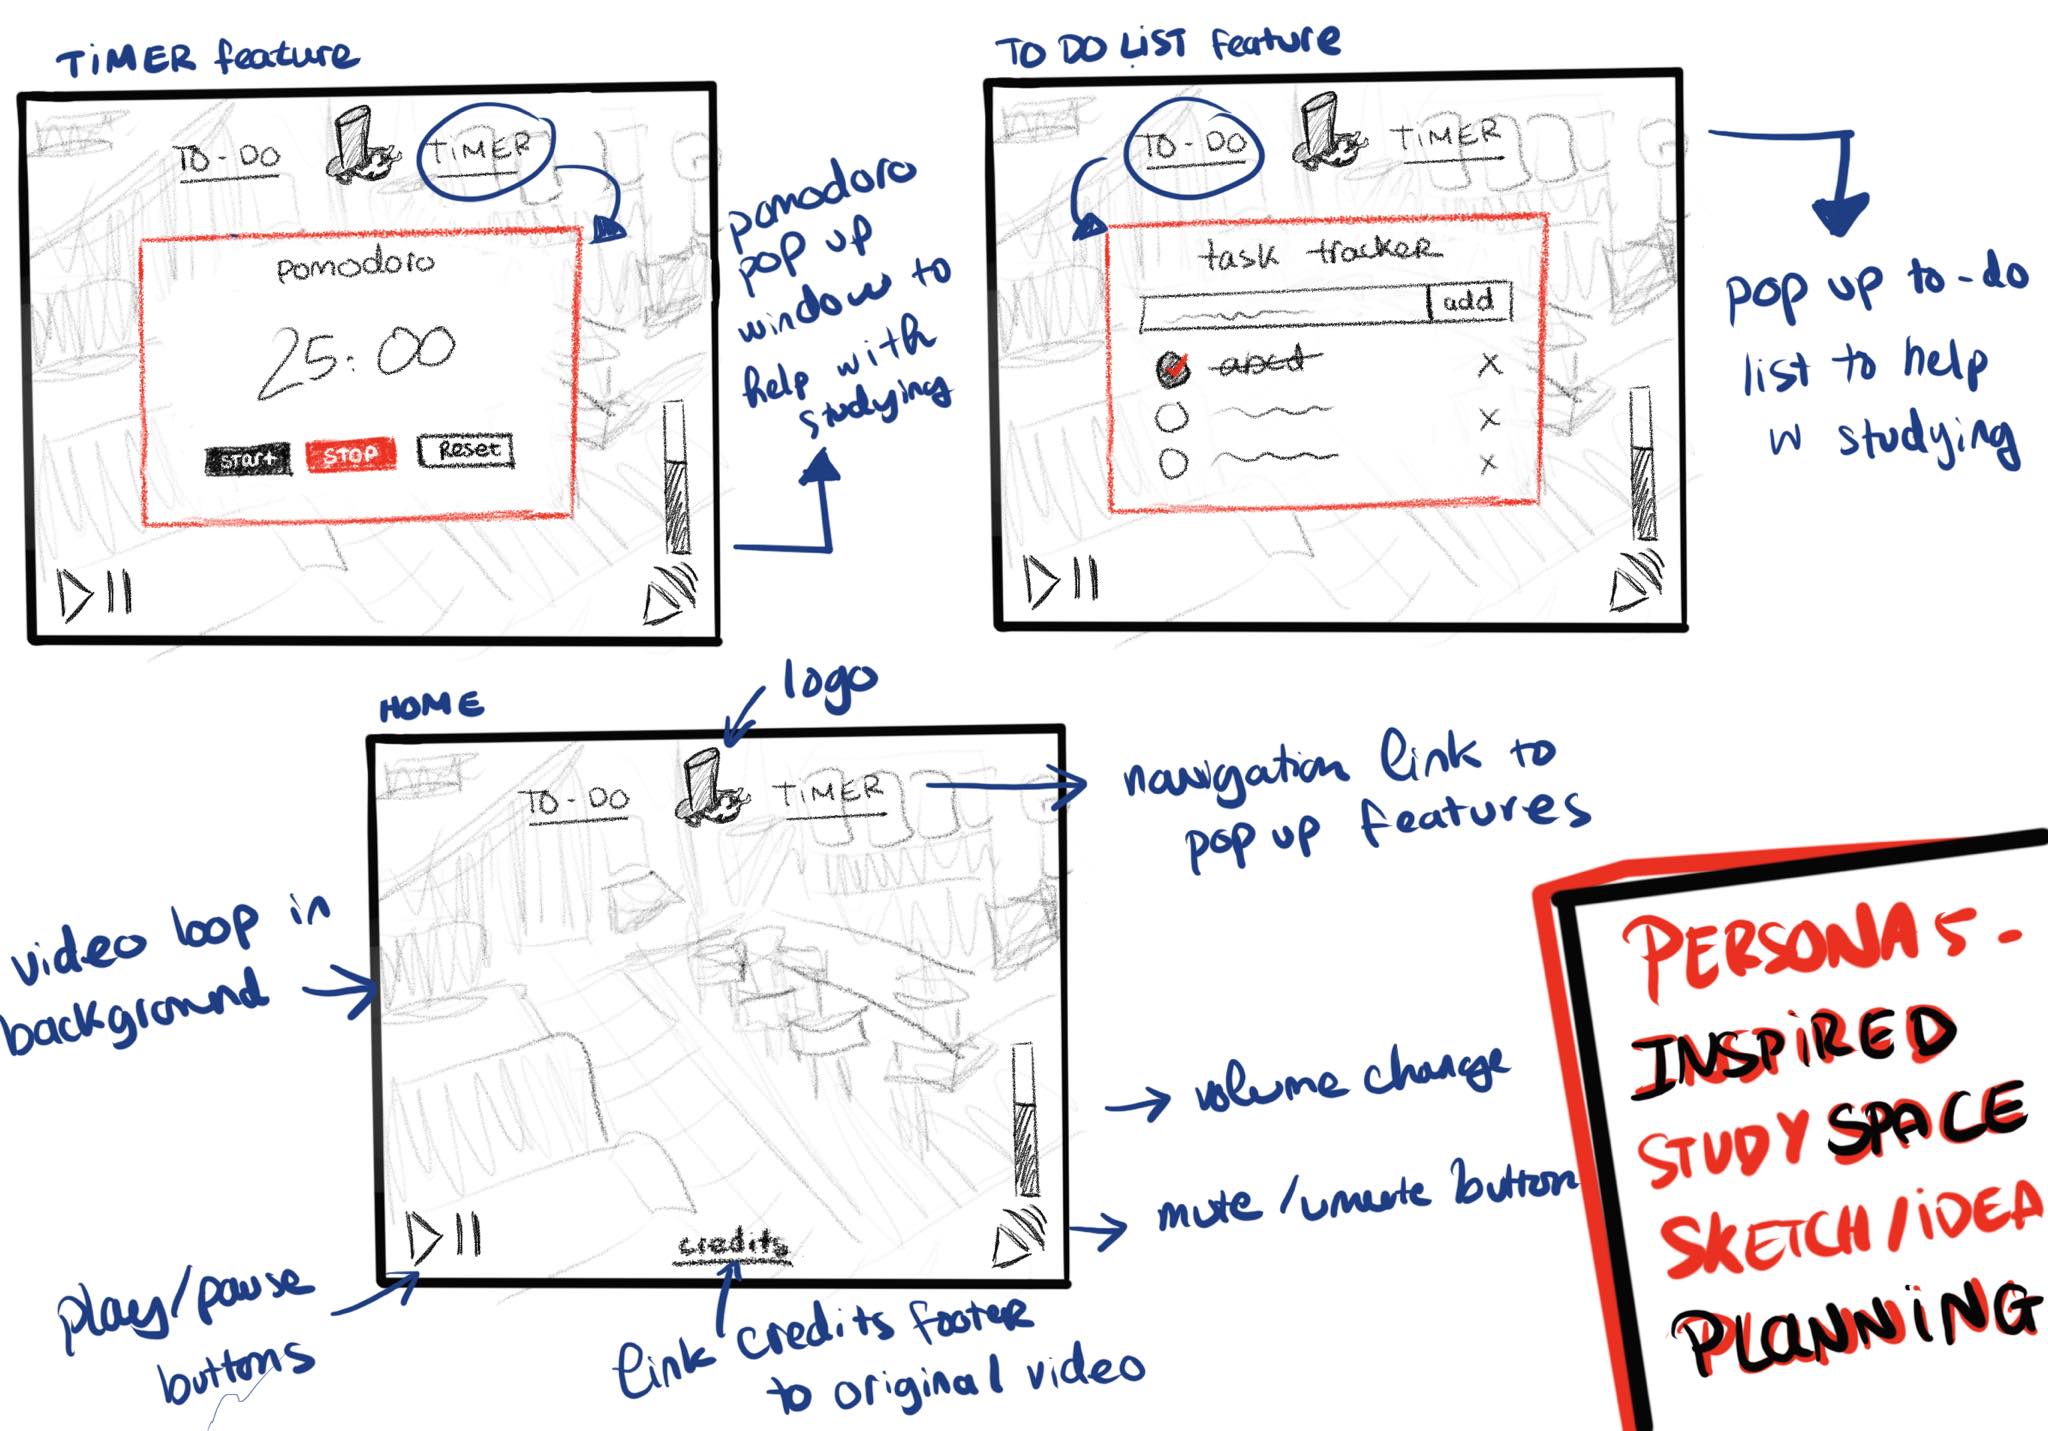 TIMER feature
TO-DO
TIMER
pomodoro
25:00
start
STOP
Reset
pomodoro
pop up
window to
help with
studying
TO DO LIST feature
TO-DO
TIMER
task tracker
add
X
X
X
pop up to-do
list to help
w studying
HOME
logo
TO-DO
TIMER
navigation link to
pop up features
video loop in
background
volume change
mute/unmute button
credits
play/pause
buttons
link credits footer
to original video
PERSONA 5-
INSPIRED
STUDY SPACE
SKETCH/IDEA
PLANNING